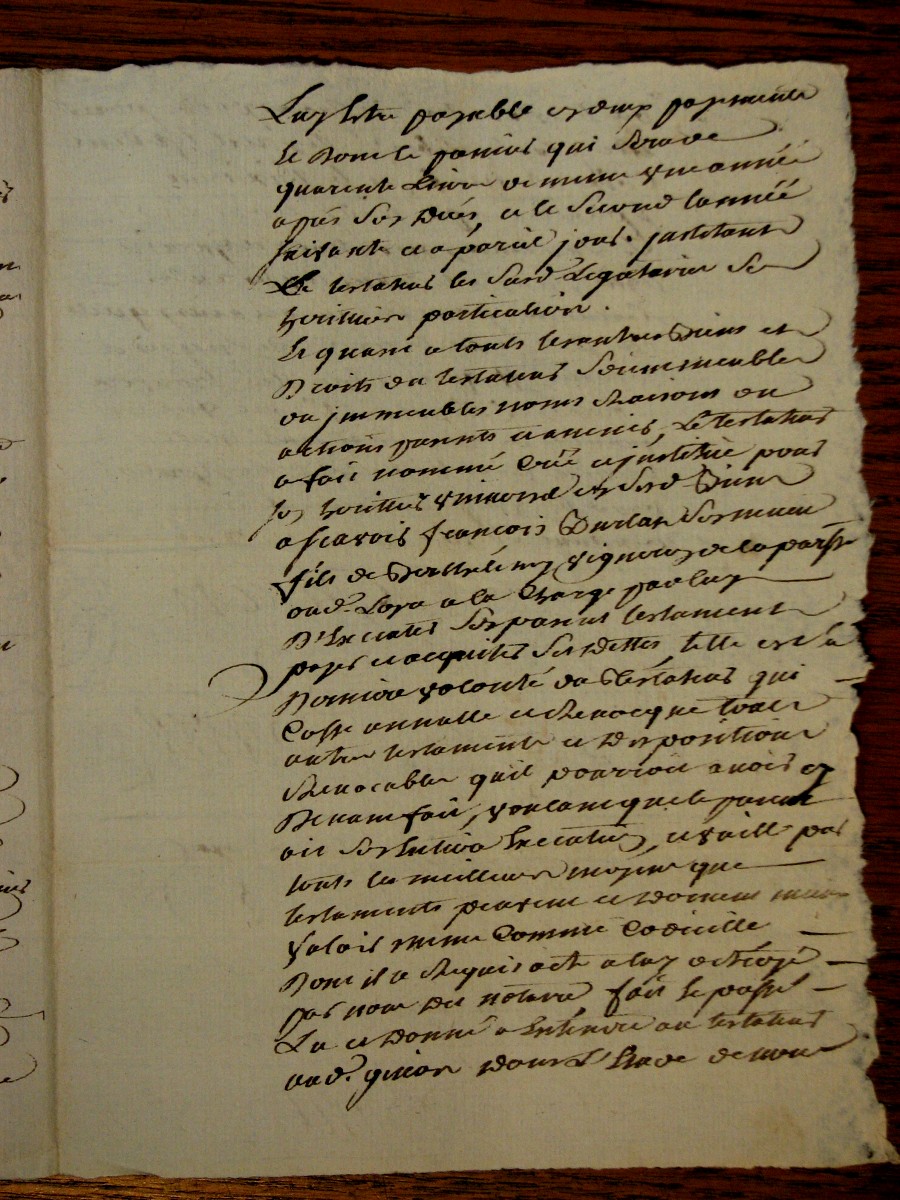 payable en deux payements
le premier qui sera de
quarente livres de meme une année
apres son deces, et le second l'année
suivante et a pareil jour. justituant
le testateur les susd legataires ses
heritiers particuliers.
Et quant a touts les autres biens et
droits du testateur soit meubles
ou jmmeubles noms raisons ou
actions presents et avenir, le testateur
a fait nommé créé et jnstitué pour
son heritier universel en sesd biens
a scavoir françois son neveu
fils de Berthélémy vigneron de la parsse
oud. a la charge par luy
d'executer son present testament
payer et acquiter ses dettes, telle est sa
derniere volonté du testateur qui
casse annulle et revocque tous
autres testaments et dispositions
revocables quil pourroit avoir cy
devant fait, voulant que le present
ait son entiere execution, et vaille par
touts les meilleurs moyens que
testaments peuvent et doivent mieux
valoir meme comme codicille
dont il a requis acte a luy octroyé
par nous dit notaire fait le passé
lu et donné a entendre au testateur
aud. dans l'etude de nous